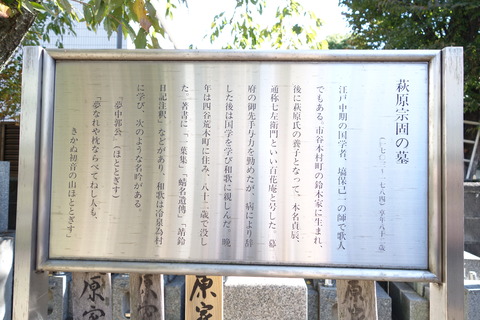 萩原宗固の墓
(一七〇三～一七八四)享年八十二歳
江戸中期の国学者、塙保己一の師で歌人
でもある。市谷本村町の鈴木家に生まれ、
後に萩原氏の養子となって、本名貞辰、
通称七左衛門といい百花庵と号した。幕
府の御先手与力を勤めたが、病により辞
した後は国学を学び和歌に親しんだ。晩
年は四谷荒木町に住み、八十二歳で没し
た。著書に「一葉集」「蜻名遺傳」「靖鈴
日記注釈」などがあり、和歌は冷泉為村
に学び、次のような名吟がある
「夢中郭公(ほととぎす)
「夢なれや枕ならべてねし人も、
きかぬ初音の山ほととぎす」
原家
原
原家
原家